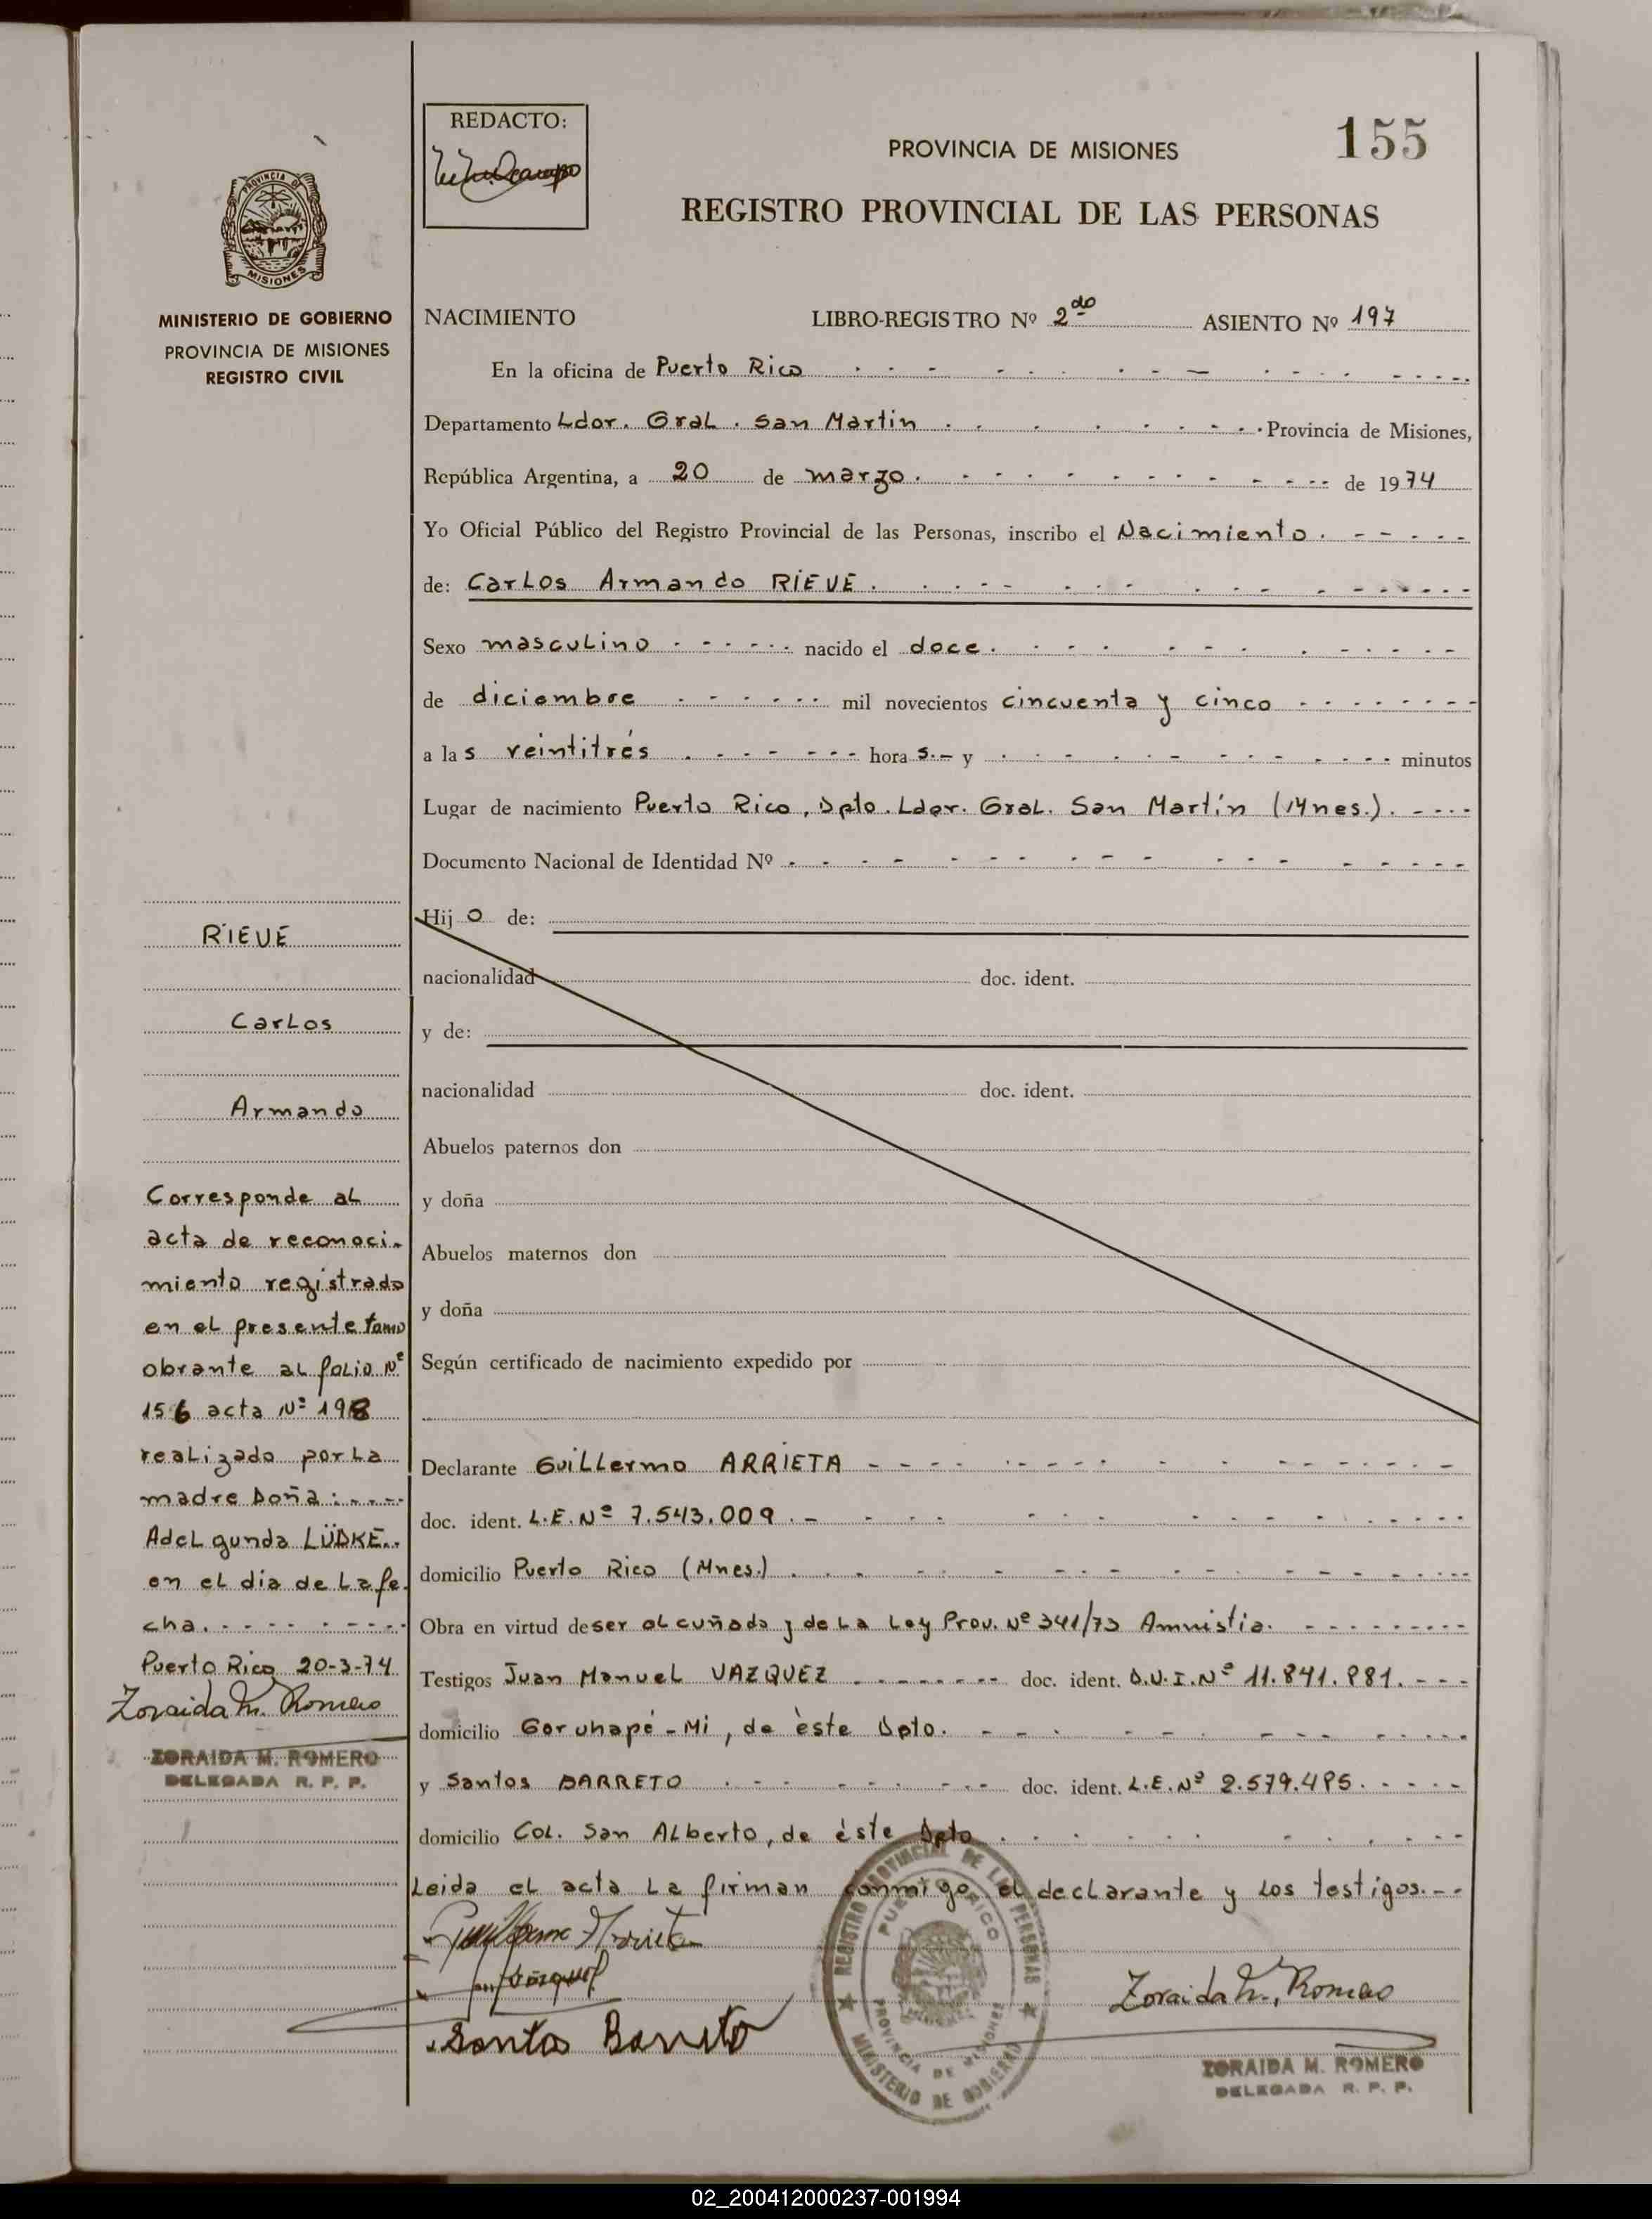 155
REDACTO:
PROVINCIA DE MISIONES
REGISTRO PROVINCIAL DE LAS PERSONAS
PROVINCIA DE
MISIONES
MINISTERIO DE GOBIERNO
PROVINCIA DE MISIONES
REGISTRO CIVIL
NACIMIENTO LIBRO-REGISTRO Nº 2do ASIENTO Nº 197
En la oficina de Puerto Rico
Departamento Ldor. Gral. San Martin Provincia de Misiones,
República Argentina, a 20 de marzo. de 1974
Yo Oficial Público del Registro Provincial de las Personas, inscribo el Nacimiento.
de: Carlos Armando RIEVE.
Sexo masculino nacido el doce.
de diciembre mil novecientos cincuenta y cinco
a las veintitrés horas.- y minutos
Lugar de nacimiento Puerto Rico, Dpto. Ldor. Gral. San Martín (Mnes.).
Documento Nacional de Identidad Nº
Hijo de:
nacionalidad doc. ident.
y de:
nacionalidad doc. ident.
Abuelos paternos don
y doña
Abuelos maternos don
y doña
Según certificado de nacimiento expedido por
Declarante Guillermo ARRIETA
doc. ident. L.E. Nº 7.543.009.-
domicilio Puerto Rico (Mnes.)
Obra en virtud de ser el cuñado y de La Ley Prov. Nº 341/73 Amnistia.
Testigos Juan Manuel VAZQUEZ doc. ident. D.U.I. Nº 11.841.881.
domicilio Garuhapé-Mi, de èste Dpto.
y Santos BARRETO doc. ident. L.E. Nº 2.579.485.
domicilio Col. San Alberto, de èste Dpto.
Leida el acta La firman conmigo el declarante y los testigos.--
Guillermo Arrieta
Vázquez
Santos Barreto
REGISTRO PROVINCIAL DE LAS PERSONAS
PUERTO RICO
PROVINCIA DE MISIONES
MINISTERIO DE GOBIERNO
Zoraida M. Romero
ZORAIDA M. ROMERO
DELEGADA R. P. P.
RIEVE
Carlos
Armando
Corresponde al
acta de reconoci-
miento registrado
en el presente tomo
obrante al folio Nº
156 acta Nº 198
realizado por La
madre Doña:
Adelgunda LÜDKE.
en el dia de La fe
cha.
Puerto Rico 20-3-74
Zoraida M. Romero
ZORAIDA M. ROMERO
DELEGADA R. P. P.
02_200412000237-001994